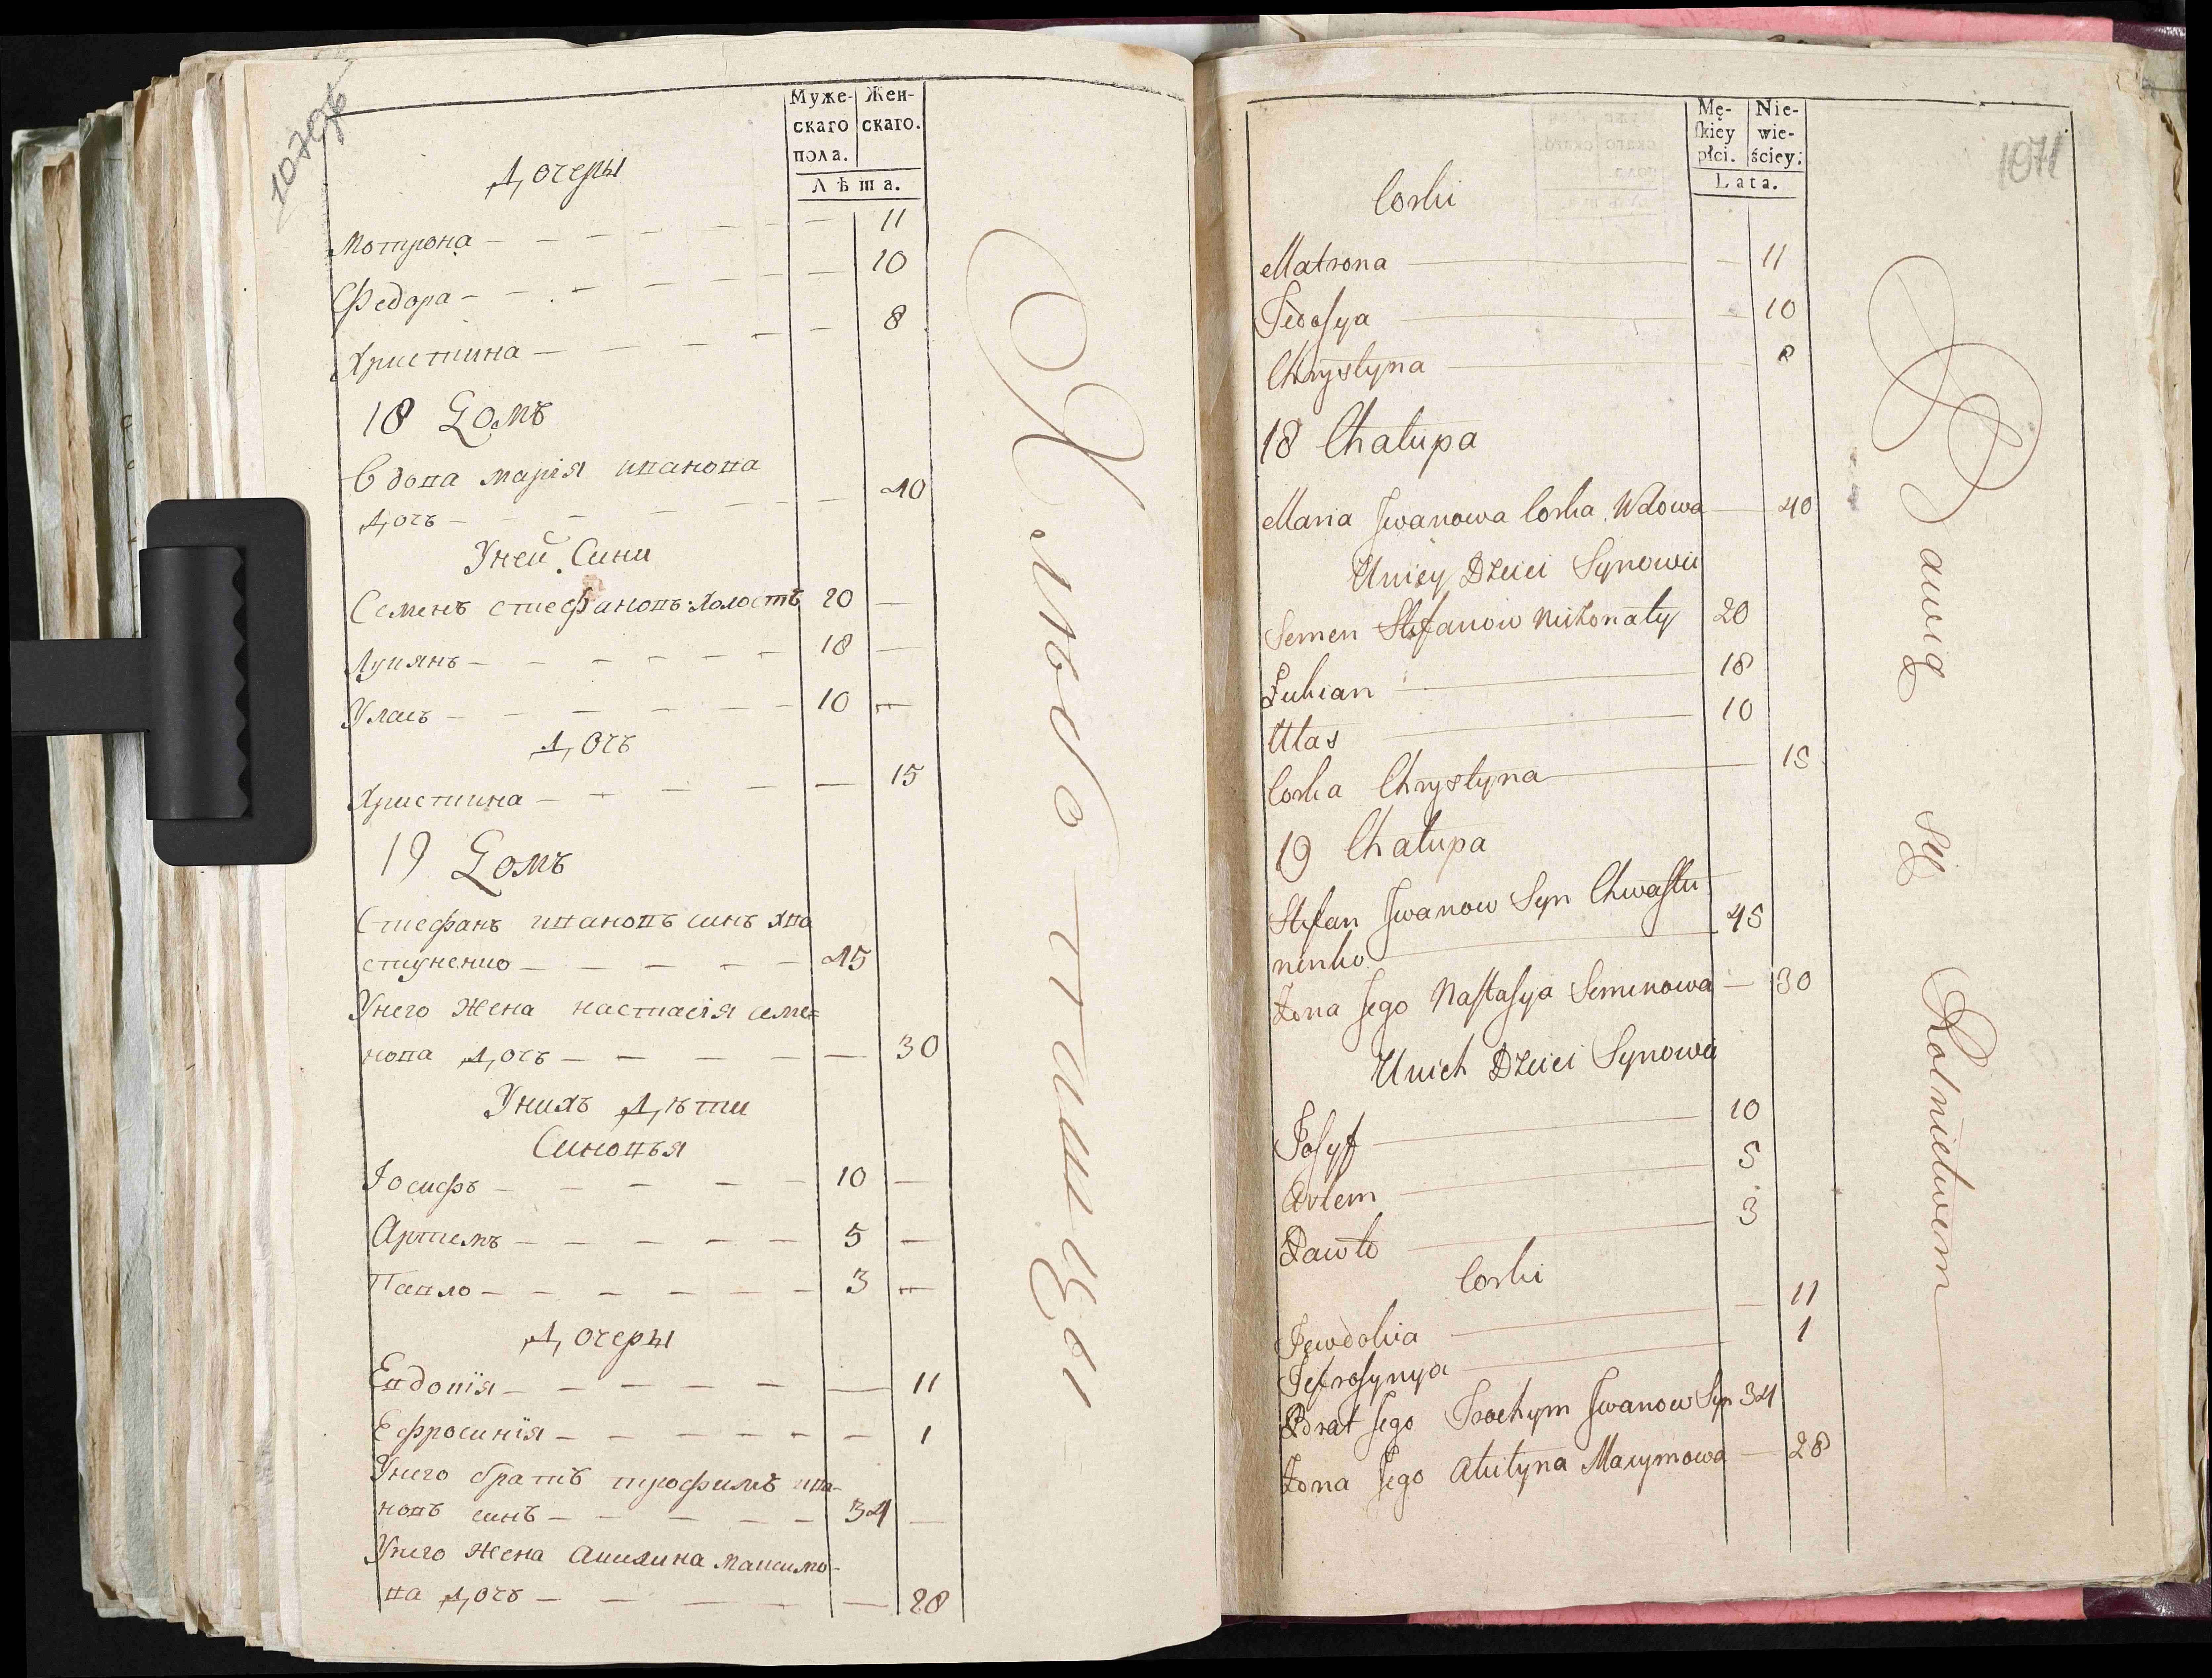 1070об
Муже-
скаго
пола.
Жен-
скаго.
Лѣта.
Дочеры
Мотрона — 11
Федора — 10
Христина — 8
18 Домъ
Вдова марія иванова
дочъ — 40
Уней Сини
Семенъ стефановъ холостъ 20 —
Лукянъ — 18 —
Уласъ — 10 —
Дочъ
Христина — 15
19 Домъ
Стефанъ ивановъ синъ хва
стуненко — 45
Унего жена настасія семе=
нова дочъ — 30
Унихъ дѣти
Синовья
Іосифъ — 10 —
Артемъ — 5 —
Павло — 3 —
Дочеры
Евдокія — 11
Ефросинія — 1
Унего братъ трофимъ ива-
новъ синъ — 34 —
Унего жена Акилина максимо-
ва дочъ — 28
Хлюбопатцы
Mę-
skiey
płci.
Nie-
wie-
ściey.
Lata.
1071
Corki
Matrona — 11
Fedosya — 10
Chrystyna — 8
18 Chałupa
Maria Jwanowa Corka Wdowa — 40
Uniey Dzieci Synowie
Semen Stefanow nieżonaty 20
Łukian — 18
Ułas — 10
Corka Chrystyna — 15
19 Chałupa
Stefan Jwanow Syn Chwastu
nenko — 45
Żona Jego Nastasya Semenowa — 30
Unich Dzieci Synowie
Josyf — 10
Artem — 5
Pawło — 3
Corki
Jewdokia — 11
Jefrosynya — 1
Brat Jego Trochym Jwanow Syn 34
Żona Jego Akilyna Maxymowa — 28
Bawią się Rolnictwem